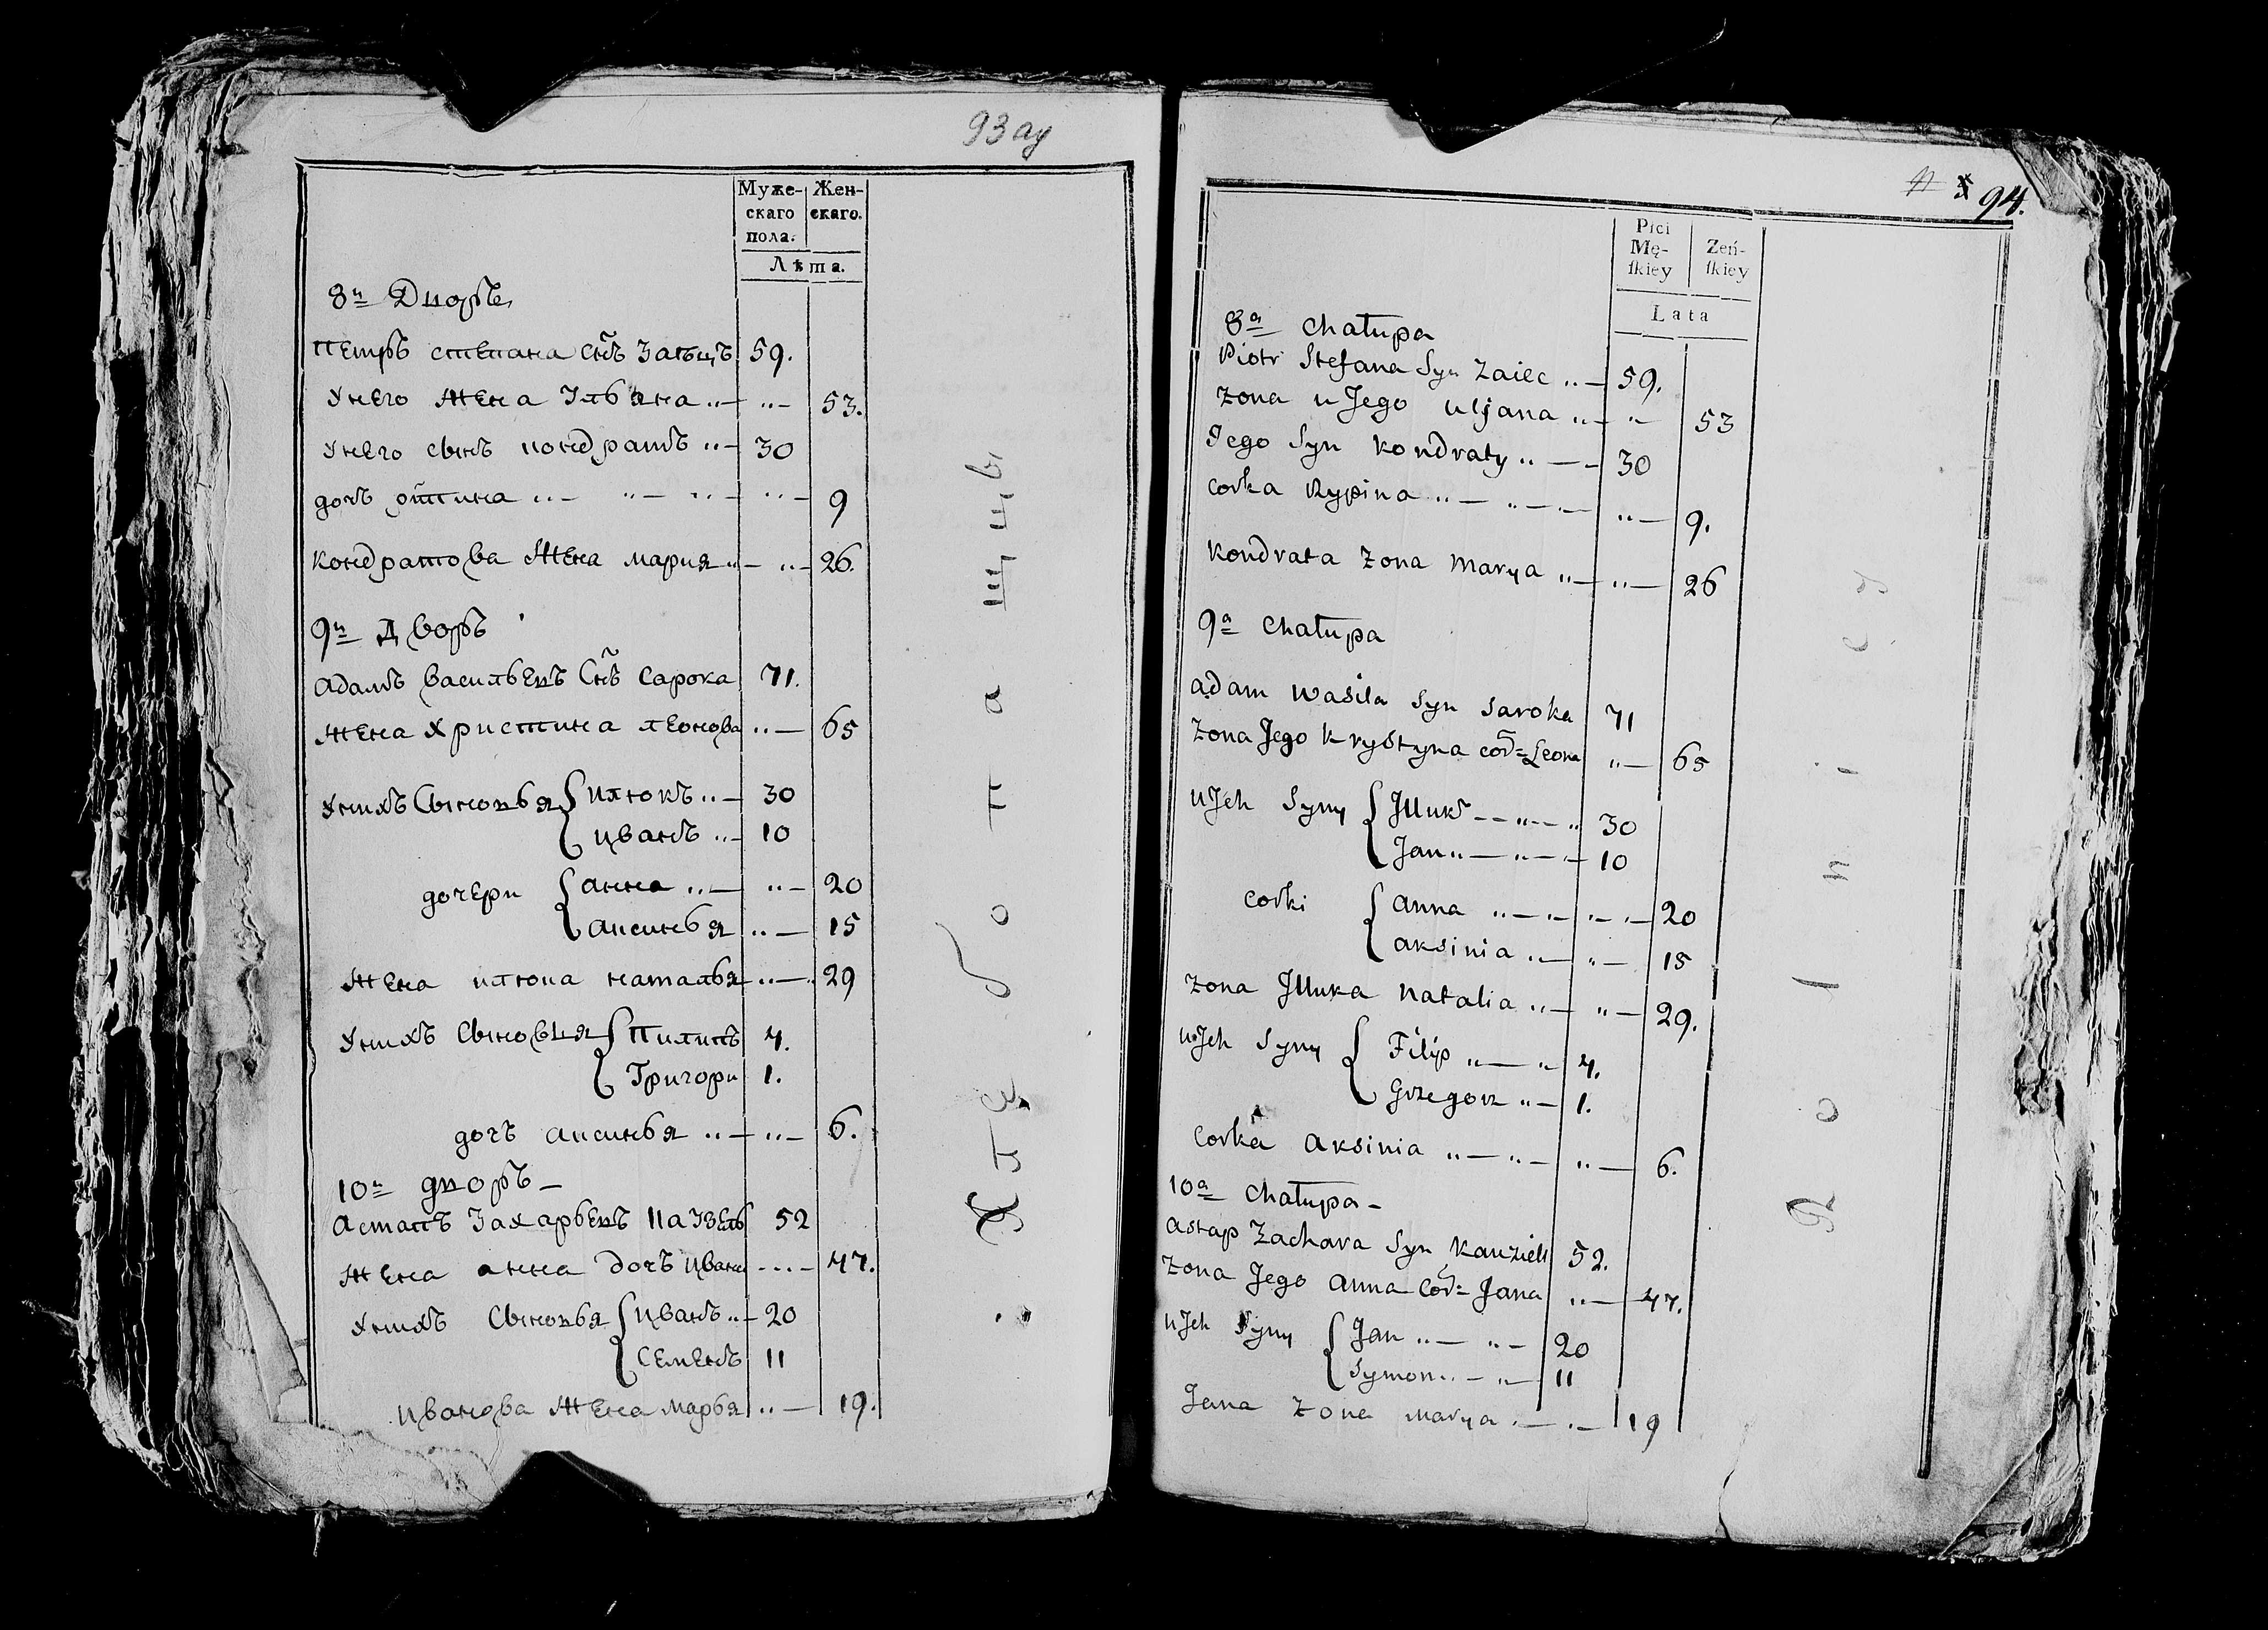 93 ау
Муже- Жен-
скаго скаго.
пола.
Лѣта.
8й Дворъ
Петръ степана снъ Заѣцъ 59.
Унего жена Ульяна 53.
Унего сынъ кондратъ 30
дочь 9
кондратова жена мария 26.
9й Дворъ
адамъ васильевъ снъ сарока 71.
жена христина леонова 65
Унихъ сыновья илюкъ 30
иванъ 10
дочери анна 20
аксинья 15
жена илюка наталья 29
Унихъ сыновья пилипъ 4.
Григори 1.
дочь аксинья 6.
10й дворъ
астапъ Захарьевъ 52
жена анна дочь ивана 47.
Унихъ сыновья иванъ 20
семенъ 11
иванова жена марья 19.
Хлебопашцы
94.
Płci
Mę- Żeń-
ſkiey ſkiey
Lata
8a Chałupa
Piotr Stefana Syn Zaiec 59.
Zona u Jego Uljana 53
Jego Syn Kondraty 30
corka 9.
Kondrata Zona Marya 26
9a Chałupa
adam Wasila Syn Saroka 71
Zona Jego Krystyna cor= Leona 65
u Jch Syny Jlluk 30
Jan 10
corki anna 20
aksinia 15
Zona Jlluka Natalia 29.
u Jch Syny Filip 4.
Grzegorz 1.
corka aksinia 6.
10a Chałupa
astap Zachara Syn 52.
Zona Jego anna cor= Jana 47.
u Jch Syny Jan 20
Symon 11
Jana Zona Marya 19
Rolnicy